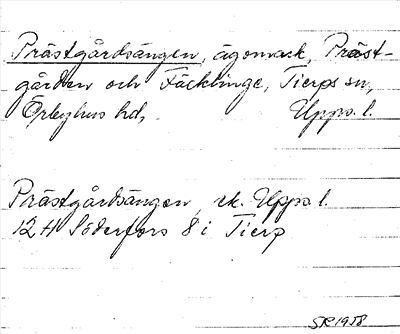 Prästgårdsängen, ägomark, Präst-
gården och Fäcklinge, Tierps sn,
Örbyhus hd, Upps. l.
Prästgårdsängen, ek. Upps l.
12 H Söderfors 8 i Tierp
SR 1958